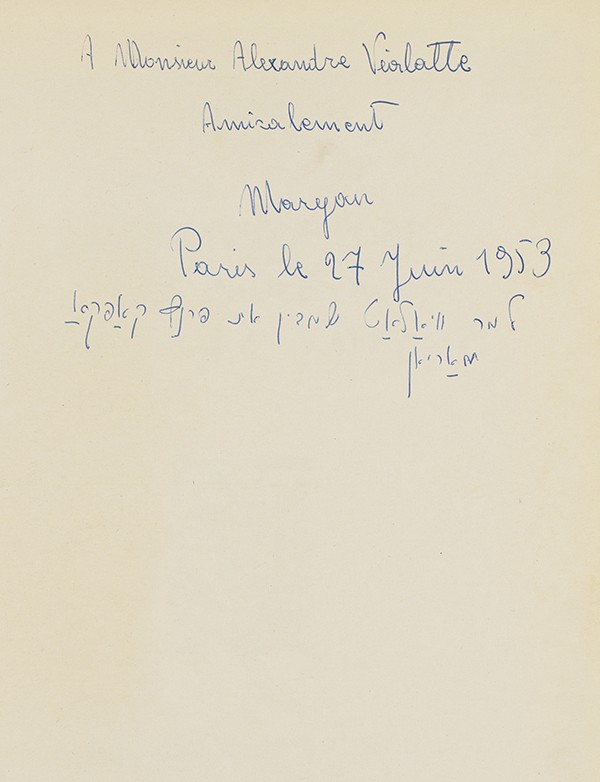 A Monsieur Alexandre Vialatte
Amicalement
Maryan
Paris le 27 Juin 1953
למר וויאַלאַט שמבין את פרנץ קאַפקאַ
מאַריאן